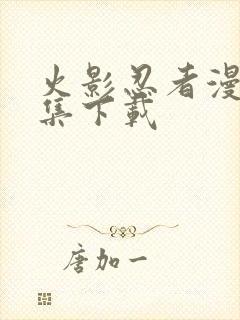 火影忍者漫
集下載
唐加一